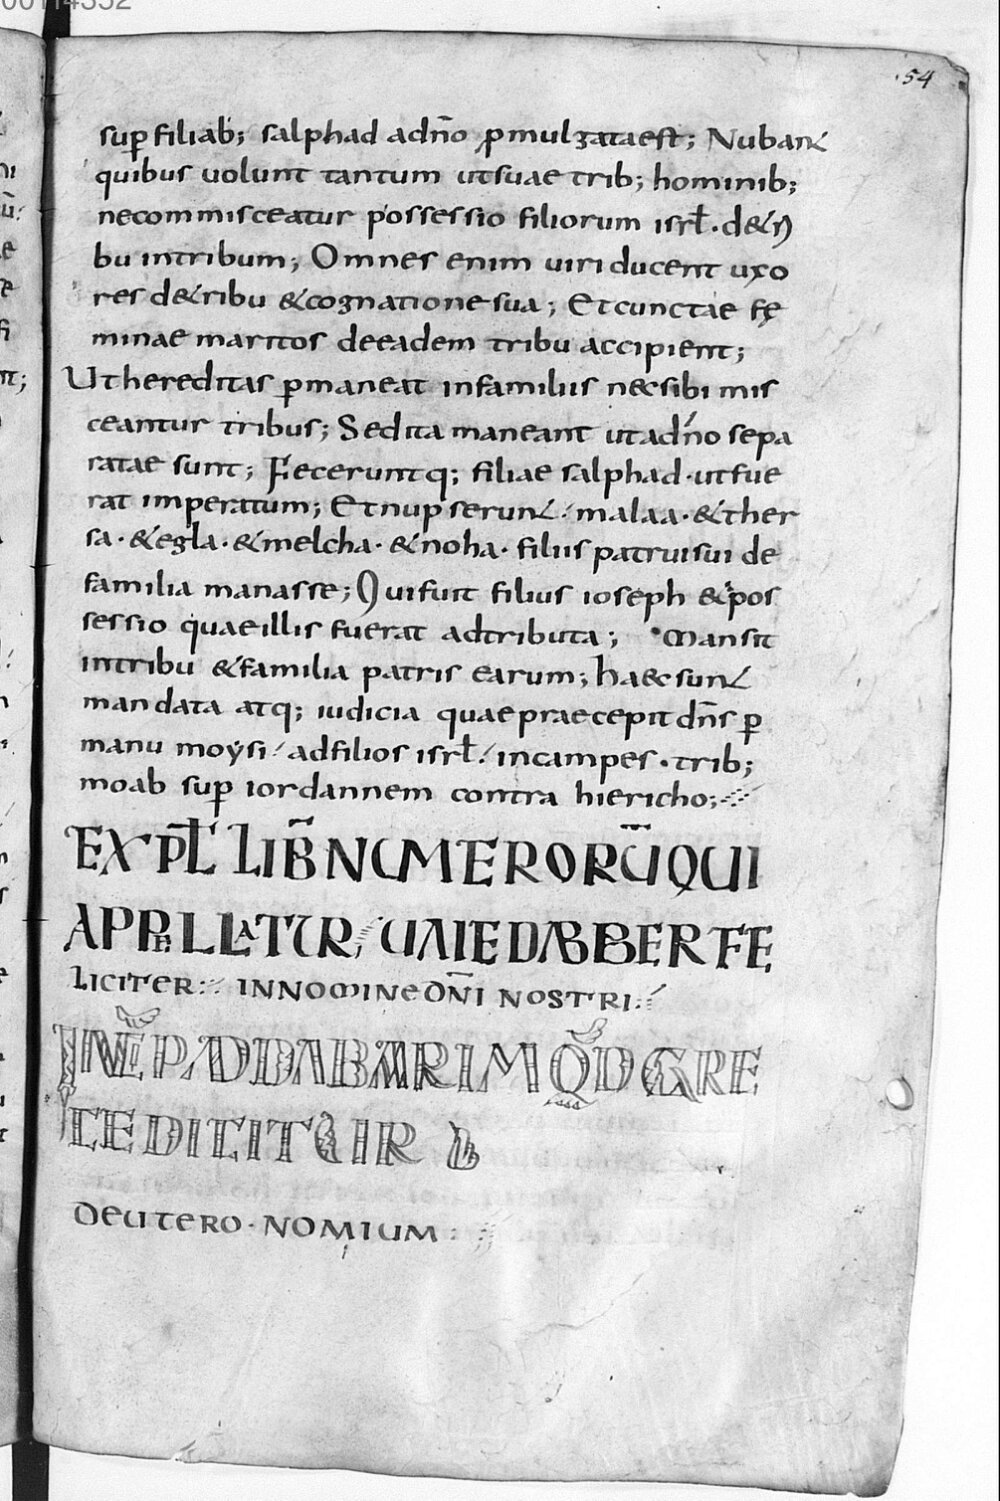 00114352
·54
sup̄ filiab; salphad adnō ꝓmulgataest; Nubant
quibus uolunt tantum utsuae trib; hominib;
necommisceatur possessio filiorum isrł · detri
bu intribum; Omnes enim uiri ducent uxo
res detribu &cognationesua; Etcunctae fę
minae maritos deeadem tribu accipient;
Uthereditas ꝑmaneat infamiliis necsibi mis
ceantur tribus; Sedita maneant utadn̄o sepa
ratae sunt; Feceruntq; filiae salphad · utfue
rat imperatum; Etnupserunt malaa · &ther
sa · &egla · &melcha · &noha · filiis patruisui de
familia manasse; Quifuit filius ioseph &pos
sessio quaeillis fuerat adtributa; Mansit
intribu &familia patris earum; haecsunt
mandata atq; iudicia quaepraecepit dn̄s ꝑ
manu moẏsi adfilios isrł incampes · trib;
moab sup̄ iordannem contra hiericho;
EXPL̄ LIB̄ NUMERORŪ QUI
APPELLATUR UAIEDABBER FE
LICITER INNOMINE DN̄I NOSTRI
INC̄IP ADDABARIM QD̄ GRE
CE DICITUR LIB
DEUTERO·NOMIUM